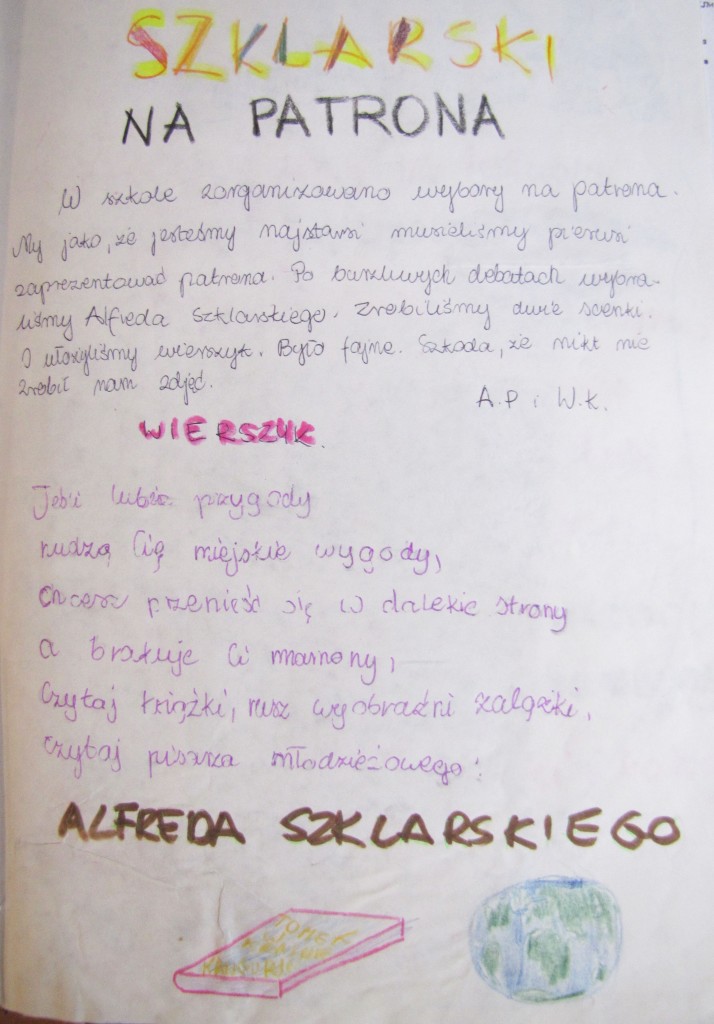 SZKLARSKI
NA PATRONA
W szkole zorganizowano wybory na patrona.
My jako, że jesteśmy najstarsi musieliśmy pierwsi
zaprezentować patrona. Po burzliwych debatach wybra-
liśmy Alfreda Szklarskiego. Zrobiliśmy dwie scenki.
I ułożyliśmy wierszyk. Było fajne. Szkoda, że nikt nie
zrobił nam zdjęć.
A.P i W.K.
WIERSZYK.
Jeśli lubisz przygody
nudzą Cię miejskie wygody,
chcesz przenieść się w dalekie strony
a brakuje Ci mamony,
Czytaj książki, rusz wyobraźni zalążki,
Czytaj pisarza młodzieżowego:
ALFREDA SZKLARSKIEGO
TOMEK
W KRAINIE